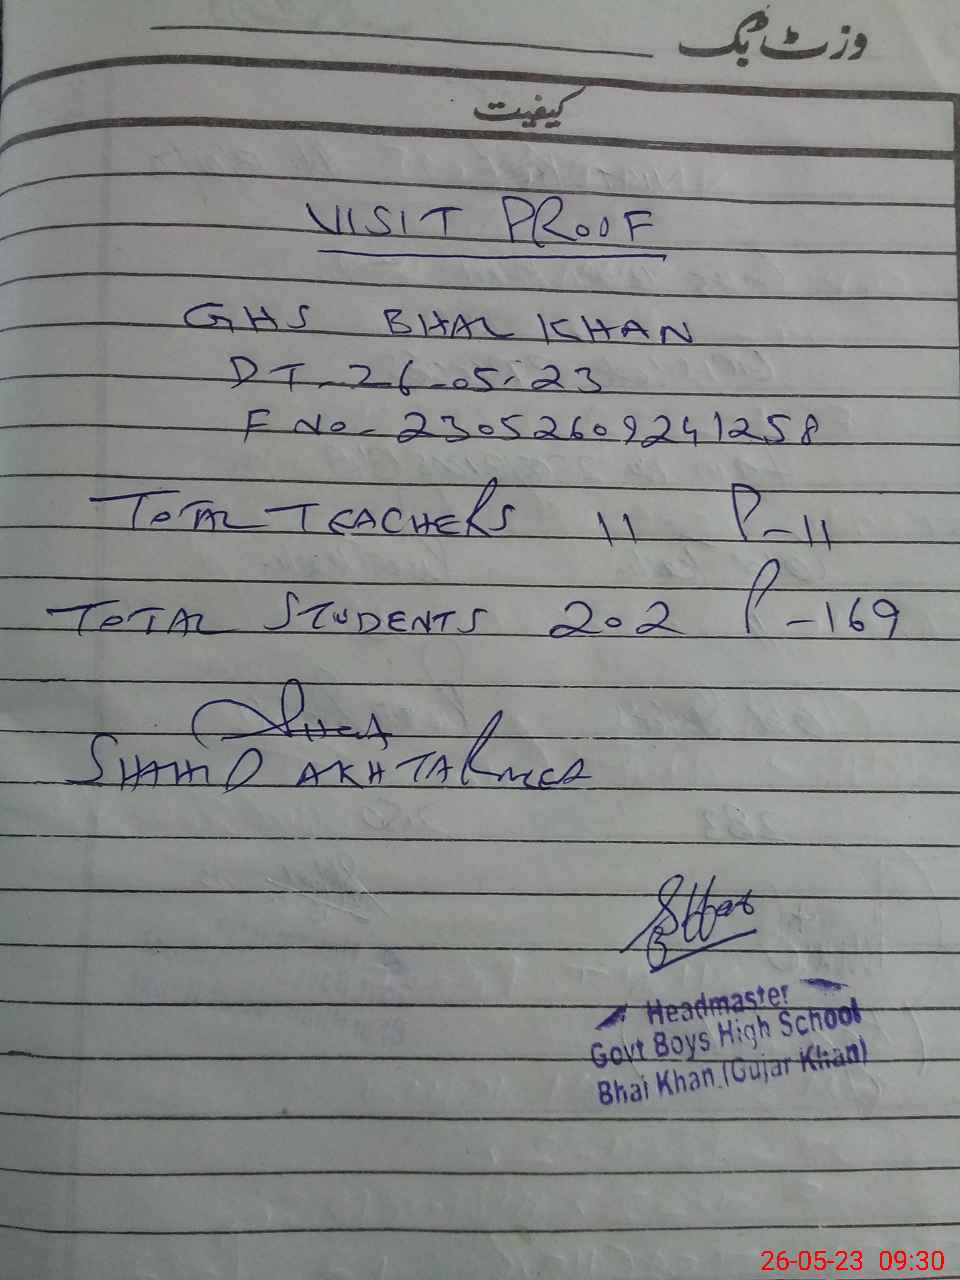 وزٹ بک
کیفیت
VISIT PROOF
GHS BHAI KHAN
DT-26-05-23
F No- 23052609241258
TOTAL TEACHERS 11 P-11
TOTAL STUDENTS 202 P-169
SHAHID AKHTAR MEA
Headmaster
Govt Boys High School
Bhai Khan (Gujar Khan)
26-05-23 09:30